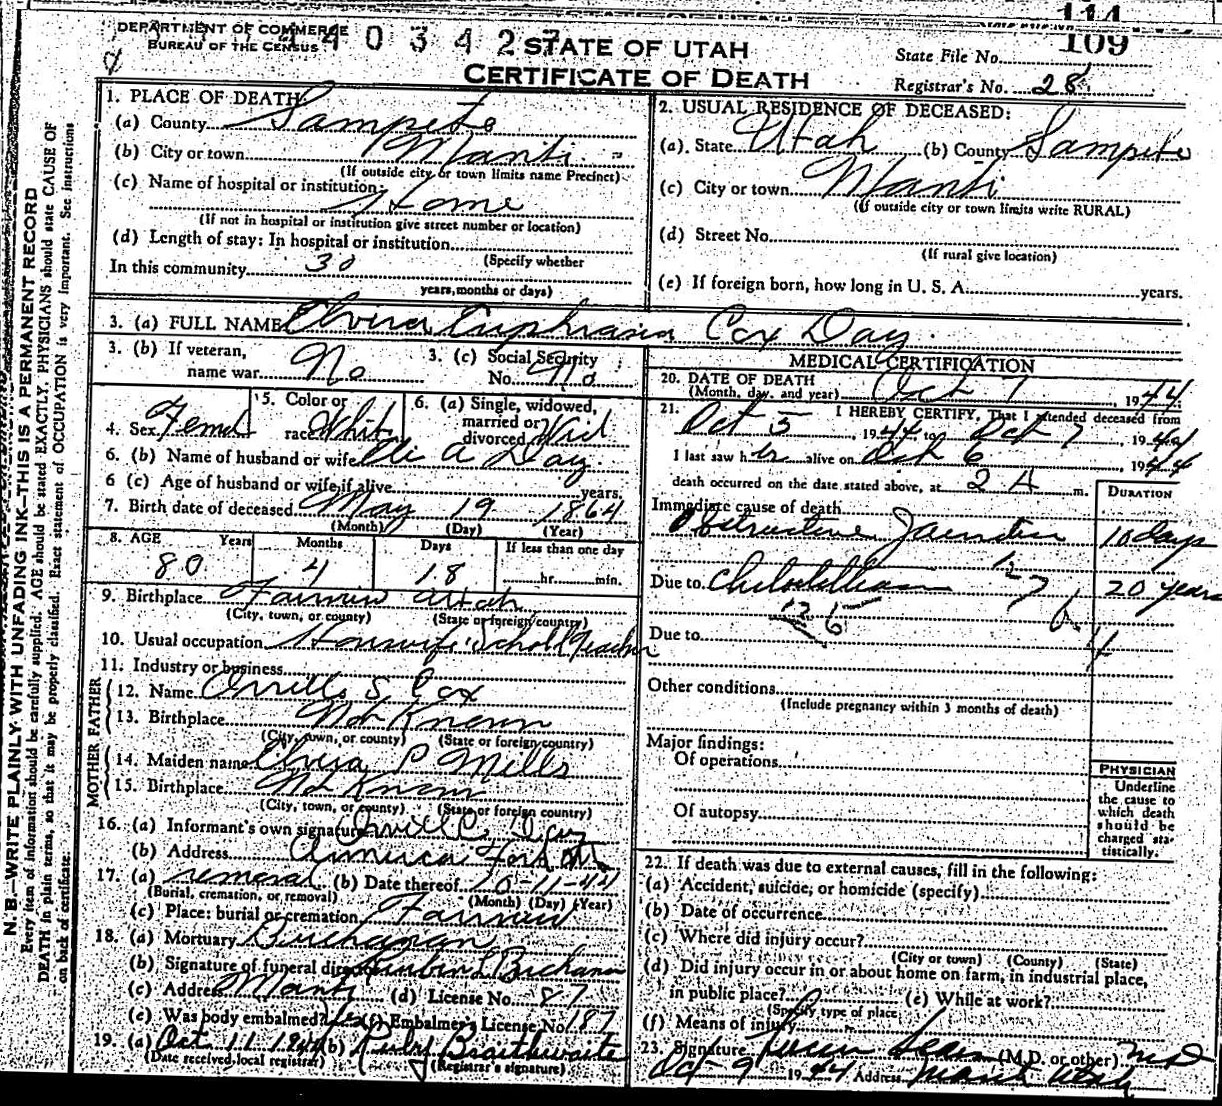 114
DEPARTMENT OF COMMERCE
BUREAU OF THE CENSUS
4 4 0 3 4 2 7
STATE OF UTAH
CERTIFICATE OF DEATH
State File No. 109
Registrar's No. 28
N. B.—WRITE PLAINLY WITH UNFADING INK—THIS IS A PERMANENT RECORD
Every item of information should be carefully supplied. AGE should be stated EXACTLY. PHYSICIANS should state CAUSE OF
DEATH in plain terms, so that it may be properly classified. Exact statement of OCCUPATION is very important. See instructions
on back of certificate.
1. PLACE OF DEATH:
(a) County Sanpete
(b) City or town Manti
(If outside city or town limits name Precinct)
(c) Name of hospital or institution:
Home
(If not in hospital or institution give street number or location)
(d) Length of stay: In hospital or institution
(Specify whether
In this community 30
years, months or days)
2. USUAL RESIDENCE OF DECEASED:
(a). State Utah (b) County Sanpete
(c) City or town Manti
(If outside city or town limits write RURAL)
(d) Street No.
(If rural give location)
(e) If foreign born, how long in U. S. A. years.
3. (a) FULL NAME Elvira Euphrasia Cox Day
3. (b) If veteran,
name war No
3. (c) Social Security
No. No
4. Sex Femal
5. Color or
race Whit
6. (a) Single, widowed,
married or
divorced Wid
6. (b) Name of husband or wife Eli A Day
6 (c) Age of husband or wife if alive years.
7. Birth date of deceased May 19 1864
(Month) (Day) (Year)
8. AGE Years Months Days If less than one day
80 4 18 hr. min.
9. Birthplace Fairview Utah
(City, town, or county) (State or foreign country)
10. Usual occupation Housewife School Teacher
11. Industry or business
FATHER
12. Name Orville S. Cox
13. Birthplace Not Known
(City, town, or county) (State or foreign country)
MOTHER
14. Maiden name Elvira P Mills
15. Birthplace Not Known
(City, town, or county) (State or foreign country)
16. (a) Informant's own signature Orvill C. Day
(b) Address American Fork
17. (a) removal (b) Date thereof 10-11-44
(Burial, cremation, or removal) (Month) (Day) (Year)
(c) Place: burial or cremation Fairview
18. (a) Mortuary Buchanan
(b) Signature of funeral director
(c) Address Manti (d) License No. 87
(e) Was body embalmed? Yes (f) Embalmer's License No. 187
19. (a) Oct 11 (b) Ruby Braithwaite
(Date received local registrar) (Registrar's signature)
MEDICAL CERTIFICATION
20. DATE OF DEATH
(Month, day, and year) Oct 7 1944
21. I HEREBY CERTIFY, That I attended deceased from
Oct 5, 1944 to Oct 7 1944
I last saw her alive on Oct 6, 1944
death occurred on the date stated above, at 2 A m.
DURATION
Immediate cause of death
Obstructive Jaundice 10 days
Due to 20 years
Due to
Other conditions
(Include pregnancy within 3 months of death)
Major findings:
Of operations
Of autopsy
PHYSICIAN
Underline
the cause to
which death
should be
charged sta-
tistically.
22. If death was due to external causes, fill in the following:
(a) Accident, suicide, or homicide (specify)
(b) Date of occurrence
(c) Where did injury occur?
(City or town) (County) (State)
(d) Did injury occur in or about home on farm, in industrial place,
in public place? (e) While at work?
(Specify type of place)
(f) Means of injury
23. Signature Sears (M.D. or other) MD
Oct 9 1944 Address Manti Utah